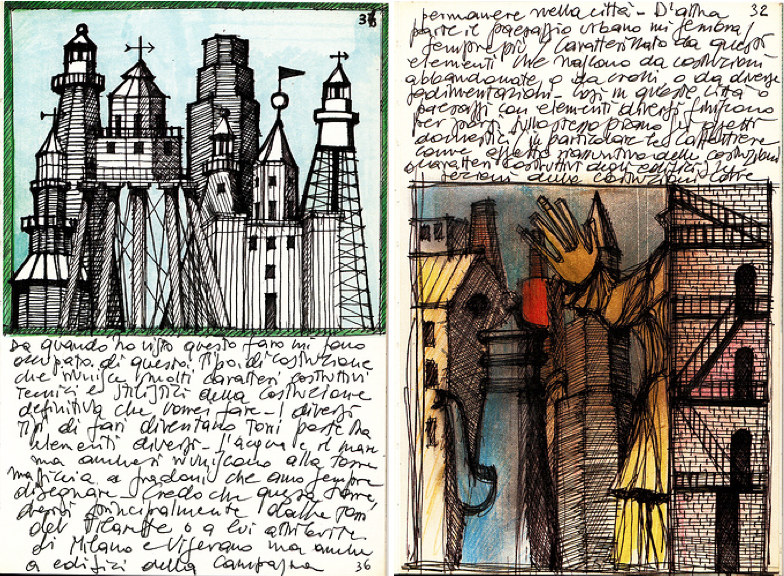 36
Da quando ho visto questo faro mi sono
occupato di questo tipo di costruzione
che riunisce molti caratteri costruttivi
tecnici e stilistici della costruzione
definitiva che vorrei fare - I diversi
tipi di fari diventano torri poste tra
elementi diversi - l'acqua e il mare
ma anche si riuniscono alla torre
massiccia a gradoni che amo sempre
disegnare - Credo che questa torre
derivi principalmente dalle torri
del Filarete o a lui attribuite
di Milano e Vigevano ma anche
a edifici della Campagna
36
32
permanere nella città - D'altra
parte il paesaggio urbano mi sembra
sempre più caratterizzato da questi
elementi che nascono da costruzioni
abbandonate o da crolli o da diverse
sedimentazioni - Così in queste città o
paesaggi con elementi diversi finiscono
per porsi sullo stesso piano gli oggetti
domestici, in particolare le caffettiere
come oggetto delle costruzioni
caratteri costruttivi degli edifici